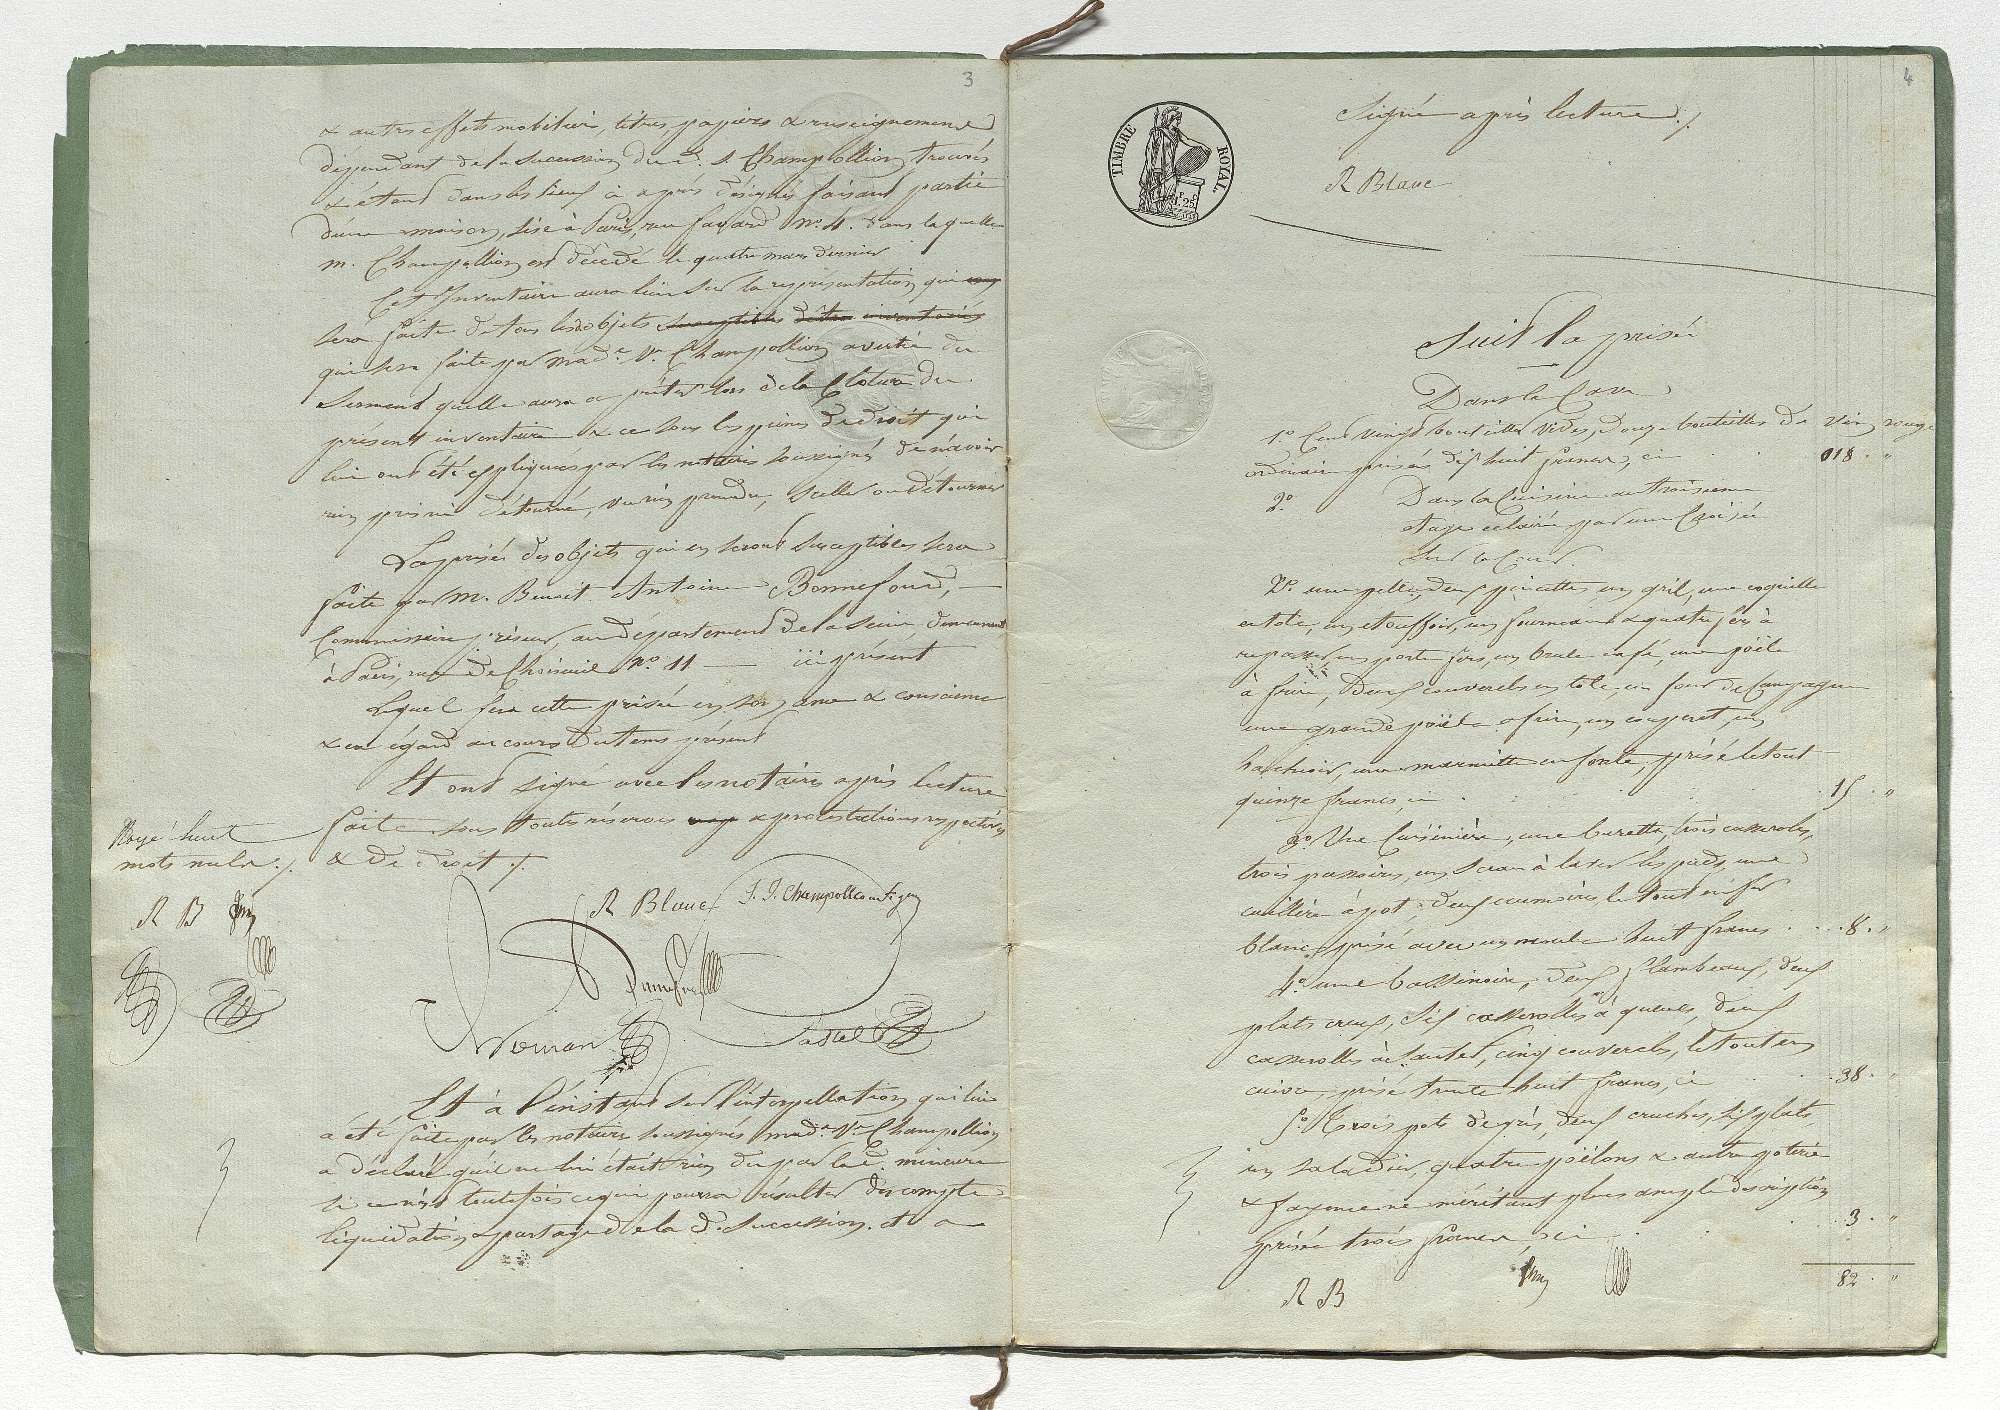 3
& autres effets mobiliers, titres, papiers & renseignemens
dépendant de la succession du d. s. Champollion, trouvés
& étant dans les lieux ci après désignés faisant partie
d'une maison, sise à Paris, rue favard No. 4. dans laquelle
m. Champollion est décédé le quatre mars dernier
Cet Inventaire aura lieu sur la représentation qui
sera faite de tous les objets susceptibles d'être inventoriés
qui sera faite par made. Ve. Champollion avertie du
serment quelle aura a prêter lors de la Cloture du
présent inventaire & ce sous les peines de droit qui
lui ont été expliquées par les notaires soussignés de n'avoir
rien pris ni détourné, vu rien prendre, receller ou détourner
La prisée des objets qui en seront susceptibles sera
faite par M. Benoit Antoine Bonnefons,
Commissaire priseur, au département de la Seine, demeurant
à Paris, rue de Choiseuil No. 11 — ici présent
Lequel fera cette prisée en son ame & conscience
& eu égard au cours du tems présent
Et ont signé avec les notaires après lecture
faite sous toutes réserves & protestations respectives
& de droit ./.
Rayé huit
mots nuls ./.
R B
R Blanc J. J. Champollion figeac
Et à l'instant sur l'interpellation qui lui
a été faite par les notaires soussignés made. Ve. Champollion
a déclaré qu'il ne lui était rien du par la d. mineure
si ce n'est toutefois ce qui pourra résulter des compte
liquidation & partage de la d. succession. et a
4
TIMBRE ROYAL.
1F. 25
Signé après lecture ./.
R Blanc
Suit la prisée
Dans la Cave
1.° Cent vingt bouteilles vides, douze bouteilles de vin rouge
ordinaire prisés dix huit francs, ci . . . 18 . "
2.° Dans la Cuisine au troisieme
étage éclairée par une Croisée
sur la Cour.
2.° une pelle, deux pincettes un gril, une coquille
en tole, un étouffoir, un fourneau & quatre fers à
repasser, un porte fers, un brule café, une poële
à frire, deux couvercles en tole, un four de Campagne
une grande poële a frire, un couperet, un
hachoir, une marmitte en fonte, prisé le tout
quinze francs, ci . . . 15 . "
3.° Une Cuisinière, une burette, trois casseroles,
trois passoires, un sceau à laver les pieds, une
cuillère à pot, deux écumoires le tout en fer
blanc, prisé avec un moule huit francs . . . 8 . "
4.° une bassinoire, deux flambeaux, deux
plats creux, six casserolles à queues, deux
casserolles à sauter, cinq couvercles, le tout en
cuivre, prisé trente huit francs, ci . . . 38 . "
5.° Trois pots de grès, deux cruches, six plats,
un saladier, quatre poëlons & autre poterie
& fayence ne méritant plus ample description
prisée trois francs, ci . . . 3 . "
82 . "
R B